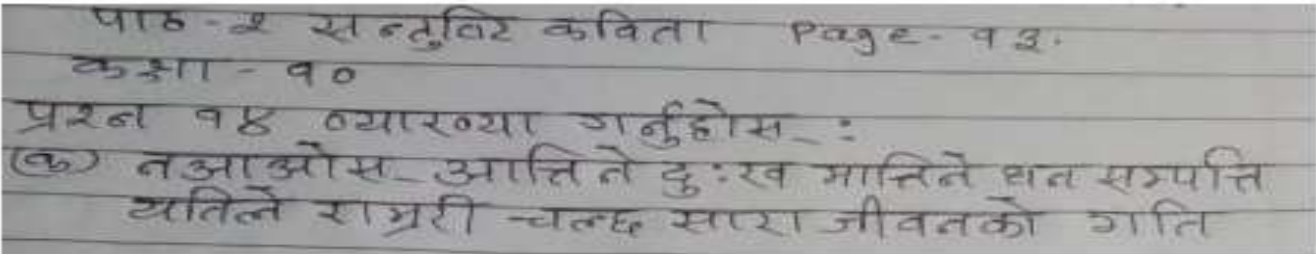 पाठ - २ सन्तुष्टि कविता Page - १३.
कक्षा - १०
प्रश्न १४ व्याख्या गर्नुहोस् :
(क) नआओस् आत्तिने दुःख मात्तिने धन सम्पत्ति
यतिले राम्ररी चल्छ सारा जीवनको गति